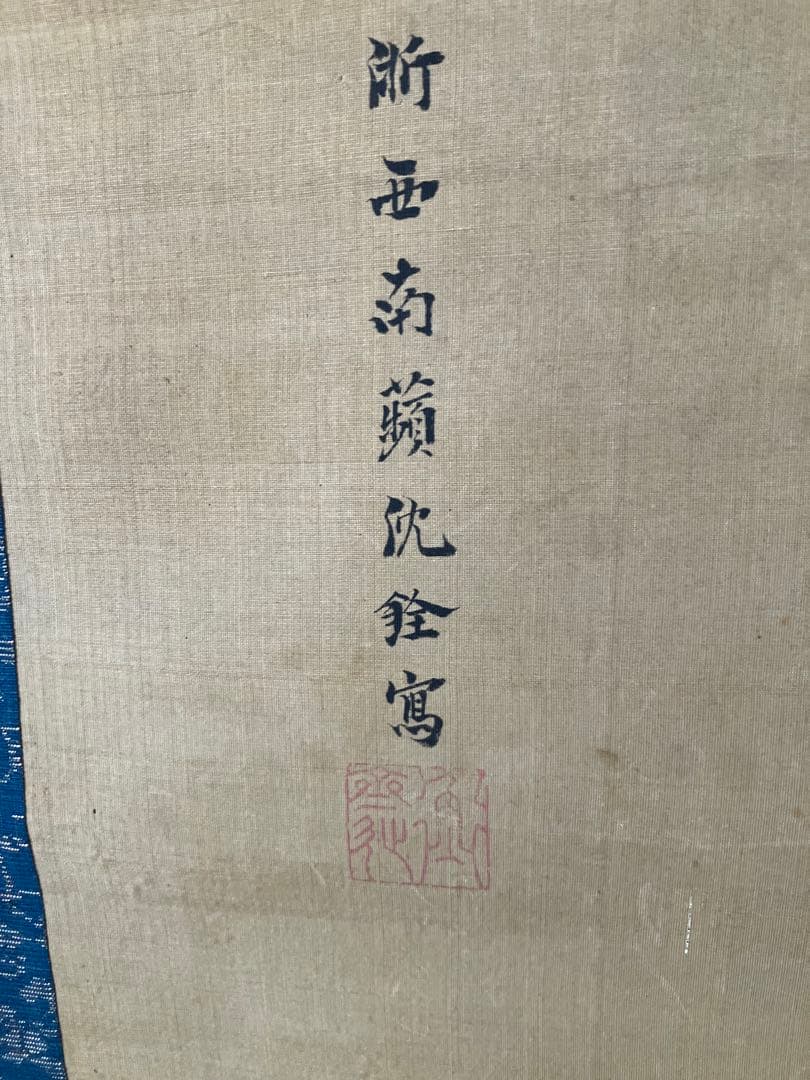 浙西南蘋沈銓寫